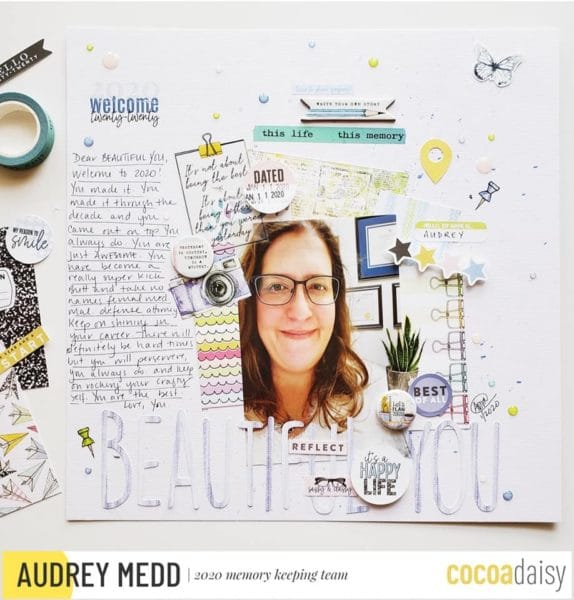 HELLO
TWENTY-TWENTY
2020
welcome
twenty-twenty
WRITE YOUR OWN STORY
this life this memory
Dear BEAUTIFUL YOU,
Welcome to 2020!
You made it. You
made it through the
decade and you
came out on top. You
always do. You are
just awesome. You
have become a
really super kick
butt and take no
names femal med
mal defense attorney
Keep on shining in
your career - there will
definitely be hard times
but you will persevere,
you always do. and keep
on rocking your crafty
self. You are the best
love, you
It's not about
being the best
It's about
being better
than you were
yesterday
DATED
JAN 11 2020
JAN 11 2020
MY REASON TO
smile
HELLO MY NAME IS
AUDREY
START
BEST
OF ALL
2020
REFLECT
IT'S A
HAPPY
LIFE
sassy & classy
BEAUTIFUL YOU
AUDREY MEDD | 2020 memory keeping team
cocoadaisy